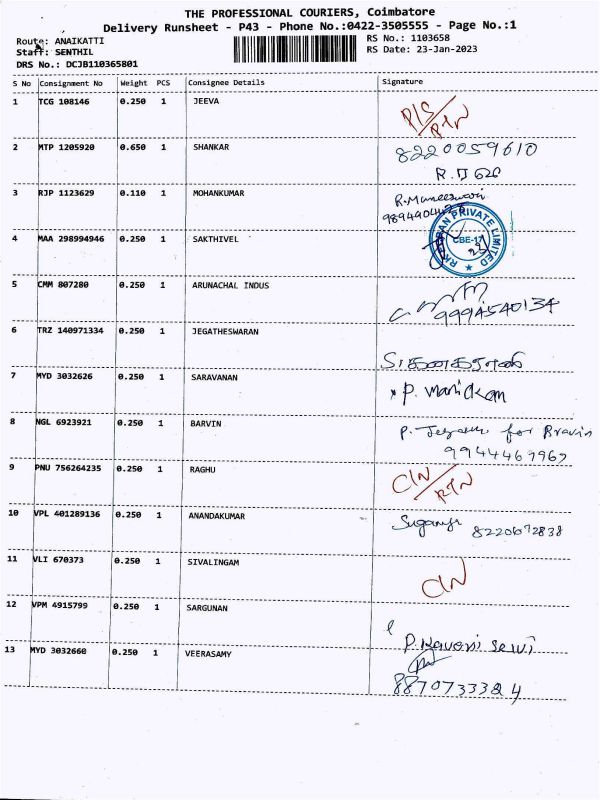 THE PROFESSIONAL COURIERS, Coimbatore
Delivery Runsheet - P43 - Phone No.:0422-3505555 - Page No.:1
Route: ANAIKATTI
RS No.: 1103658
Staff: SENTHIL
RS Date: 23-Jan-2023
DRS No.: DCJB110365801
S No Consignment No Weight PCS Consignee Details Signature
1 TCG 108146 0.250 1 JEEVA P/S/RTN
2 MTP 1205920 0.650 1 SHANKAR 8220059610
3 RJP 1123629 0.110 1 MOHANKUMAR R. Muneeswari
PRIVATE LIMITED
CBE-17
4 MAA 298994946 0.250 1 SAKTHIVEL
5 CMM 807280 0.250 1 ARUNACHAL INDUS
9994540134
6 TRZ 140971334 0.250 1 JEGATHESWARAN
7 MYD 3032626 0.250 1 SARAVANAN P. Manickam
8 NGL 6923921 0.250 1 BARVIN P. for Bravin
9 PNU 756264235 0.250 1 RAGHU C/N/RTN
10 VPL 401289136 0.250 1 ANANDAKUMAR Suganya 8220672838
11 VLI 670373 0.250 1 SIVALINGAM C/N
12 VPM 4915799 0.250 1 SARGUNAN
13 MYD 3032660 0.250 1 VEERASAMY